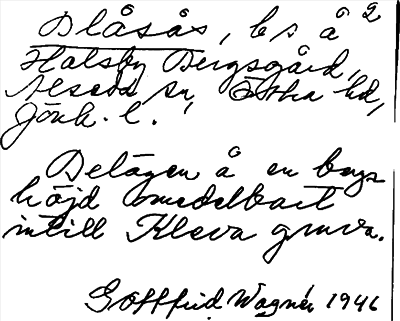 Blåsås, bs å 2
Holsby Bergsgård,
Alseda sn, Östra hd,
Jönk. l.
Belägen å en bergs
höjd omedelbart
intill Kleva gruva.
Gottfrid Wagnér 1946